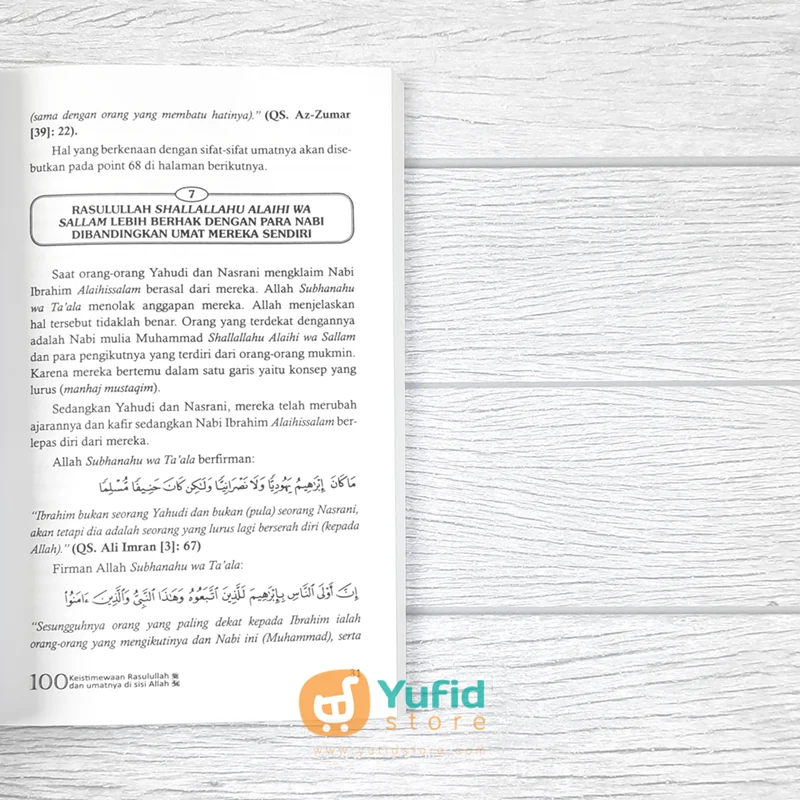 (sama dengan orang yang membatu hatinya)." (QS. Az-Zumar
[39]: 22).
Hal yang berkenaan dengan sifat-sifat umatnya akan dise-
butkan pada point 68 di halaman berikutnya.
7
RASULULLAH SHALLALLAHU ALAIHI WA
SALLAM LEBIH BERHAK DENGAN PARA NABI
DIBANDINGKAN UMAT MEREKA SENDIRI
Saat orang-orang Yahudi dan Nasrani mengklaim Nabi
Ibrahim Alaihissalam berasal dari mereka. Allah Subhanahu
wa Ta'ala menolak anggapan mereka. Allah menjelaskan
hal tersebut tidaklah benar. Orang yang terdekat dengannya
adalah Nabi mulia Muhammad Shallallahu Alaihi wa Sallam
dan para pengikutnya yang terdiri dari orang-orang mukmin.
Karena mereka bertemu dalam satu garis yaitu konsep yang
lurus (manhaj mustaqim).
Sedangkan Yahudi dan Nasrani, mereka telah merubah
ajarannya dan kafir sedangkan Nabi Ibrahim Alaihissalam ber-
lepas diri dari mereka.
Allah Subhanahu wa Ta'ala berfirman:
مَا كَانَ إِبْرَاهِيمُ يَهُودِيًّا وَلَا نَصْرَانِيًّا وَلَٰكِن كَانَ حَنِيفًا مُّسْلِمًا
"Ibrahim bukan seorang Yahudi dan bukan (pula) seorang Nasrani,
akan tetapi dia adalah seorang yang lurus lagi berserah diri (kepada
Allah)." (QS. Ali Imran [3]: 67)
Firman Allah Subhanahu wa Ta'ala:
إِنَّ أَوْلَى النَّاسِ بِإِبْرَاهِيمَ لَلَّذِينَ اتَّبَعُوهُ وَهَٰذَا النَّبِيُّ وَالَّذِينَ ءَامَنُوا
"Sesungguhnya orang yang paling dekat kepada Ibrahim ialah
orang-orang yang mengikutinya dan Nabi ini (Muhammad), serta
100 Keistimewaan Rasulullah ﷺ
dan umatnya di sisi Allah ﷻ
31
Yufid
store
www.yufidstore.com